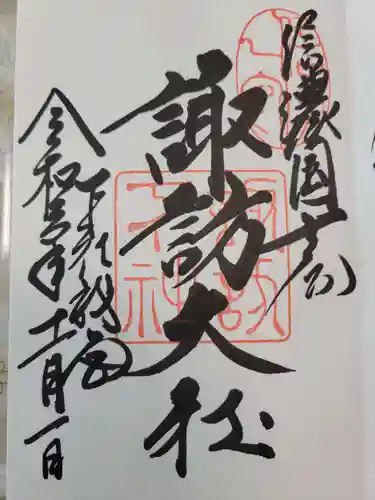 信濃國一之宮
諏訪大社
下社秋宮
令和六年十一月一日